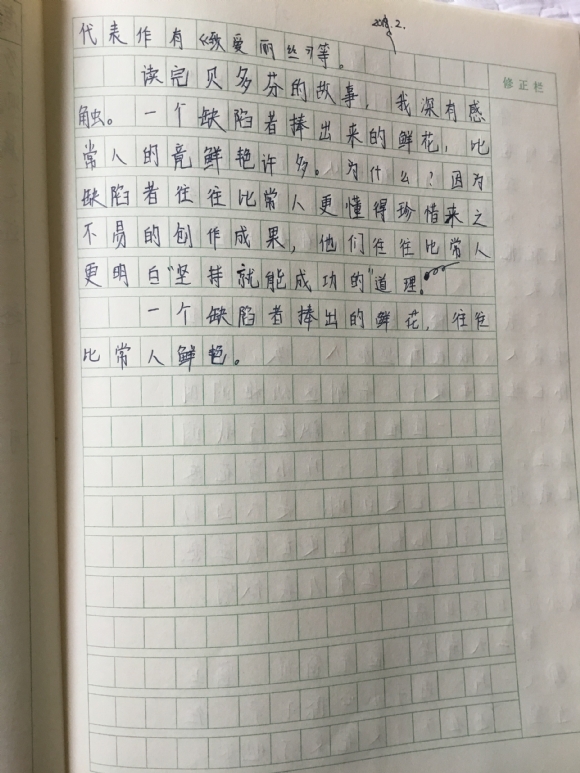 代表作有《致爱丽丝》等。
修正栏
读完贝多芬的故事，我深有感
触。一个缺陷者捧出来的鲜花，比
常人的竟鲜艳许多。为什么？因为
缺陷者往往比常人更懂得珍惜来之
不易的创作成果，他们往往比常人
更明白“坚持就能成功的”道理。
一个缺陷者捧出的鲜花，往往
比常人鲜艳。